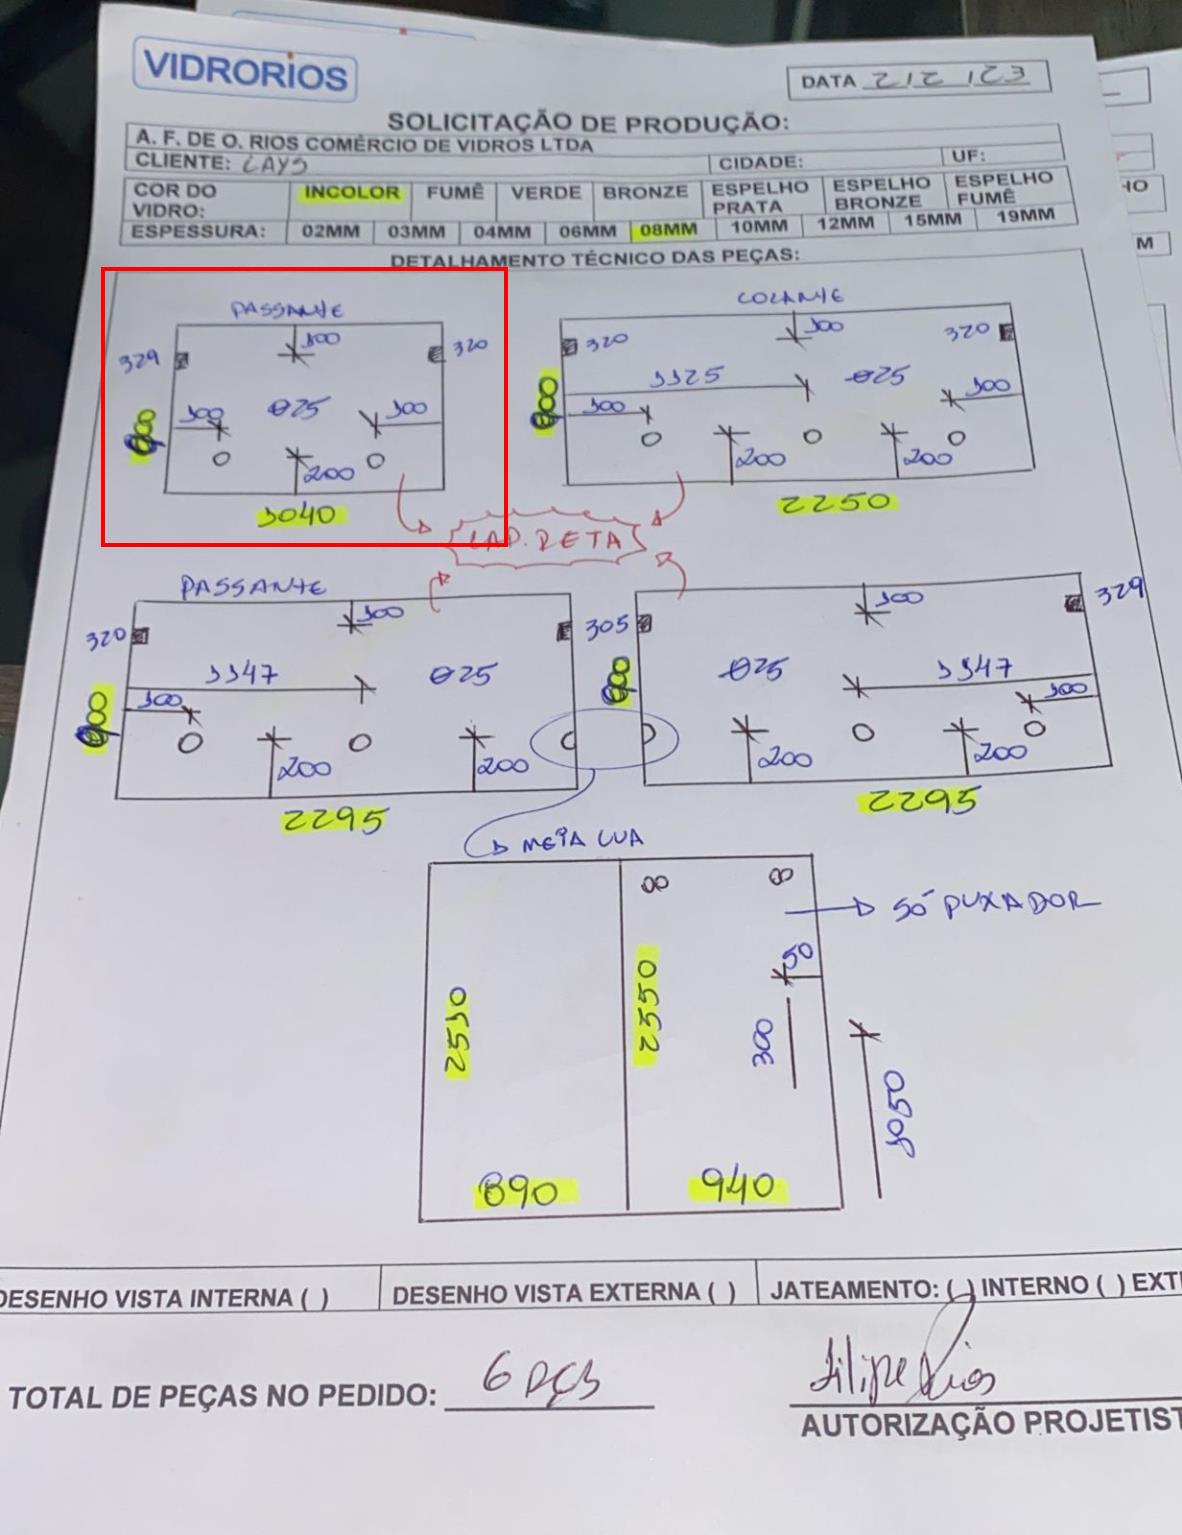 VIDRORIOS
DATA 2/2/23
SOLICITAÇÃO DE PRODUÇÃO:
A. F. DE O. RIOS COMÉRCIO DE VIDROS LTDA
CLIENTE: LAYS CIDADE: UF:
COR DO VIDRO: INCOLOR FUMÊ VERDE BRONZE ESPELHO PRATA ESPELHO BRONZE ESPELHO FUMÊ
ESPESSURA: 02MM 03MM 04MM 06MM 08MM 10MM 12MM 15MM 19MM
DETALHAMENTO TÉCNICO DAS PEÇAS:
PASSANTE
329 100 320
100 Ø25 100
200
1040
COLANTE
320 100 320
1125 Ø25
100 100
200 200
2250
LAP. RETA
PASSANTE
320 100 305
1147 Ø25
100
200 200
2295
100 329
Ø25 1147
100
200 200
2295
MEIA LUA
SÓ PUXADOR
50
2550 2550 300
1050
890 940
DESENHO VISTA INTERNA ( ) DESENHO VISTA EXTERNA ( ) JATEAMENTO: ( ) INTERNO ( ) EXT
TOTAL DE PEÇAS NO PEDIDO: 6 PÇS
Filipe Rios
AUTORIZAÇÃO PROJETIST
HO
M